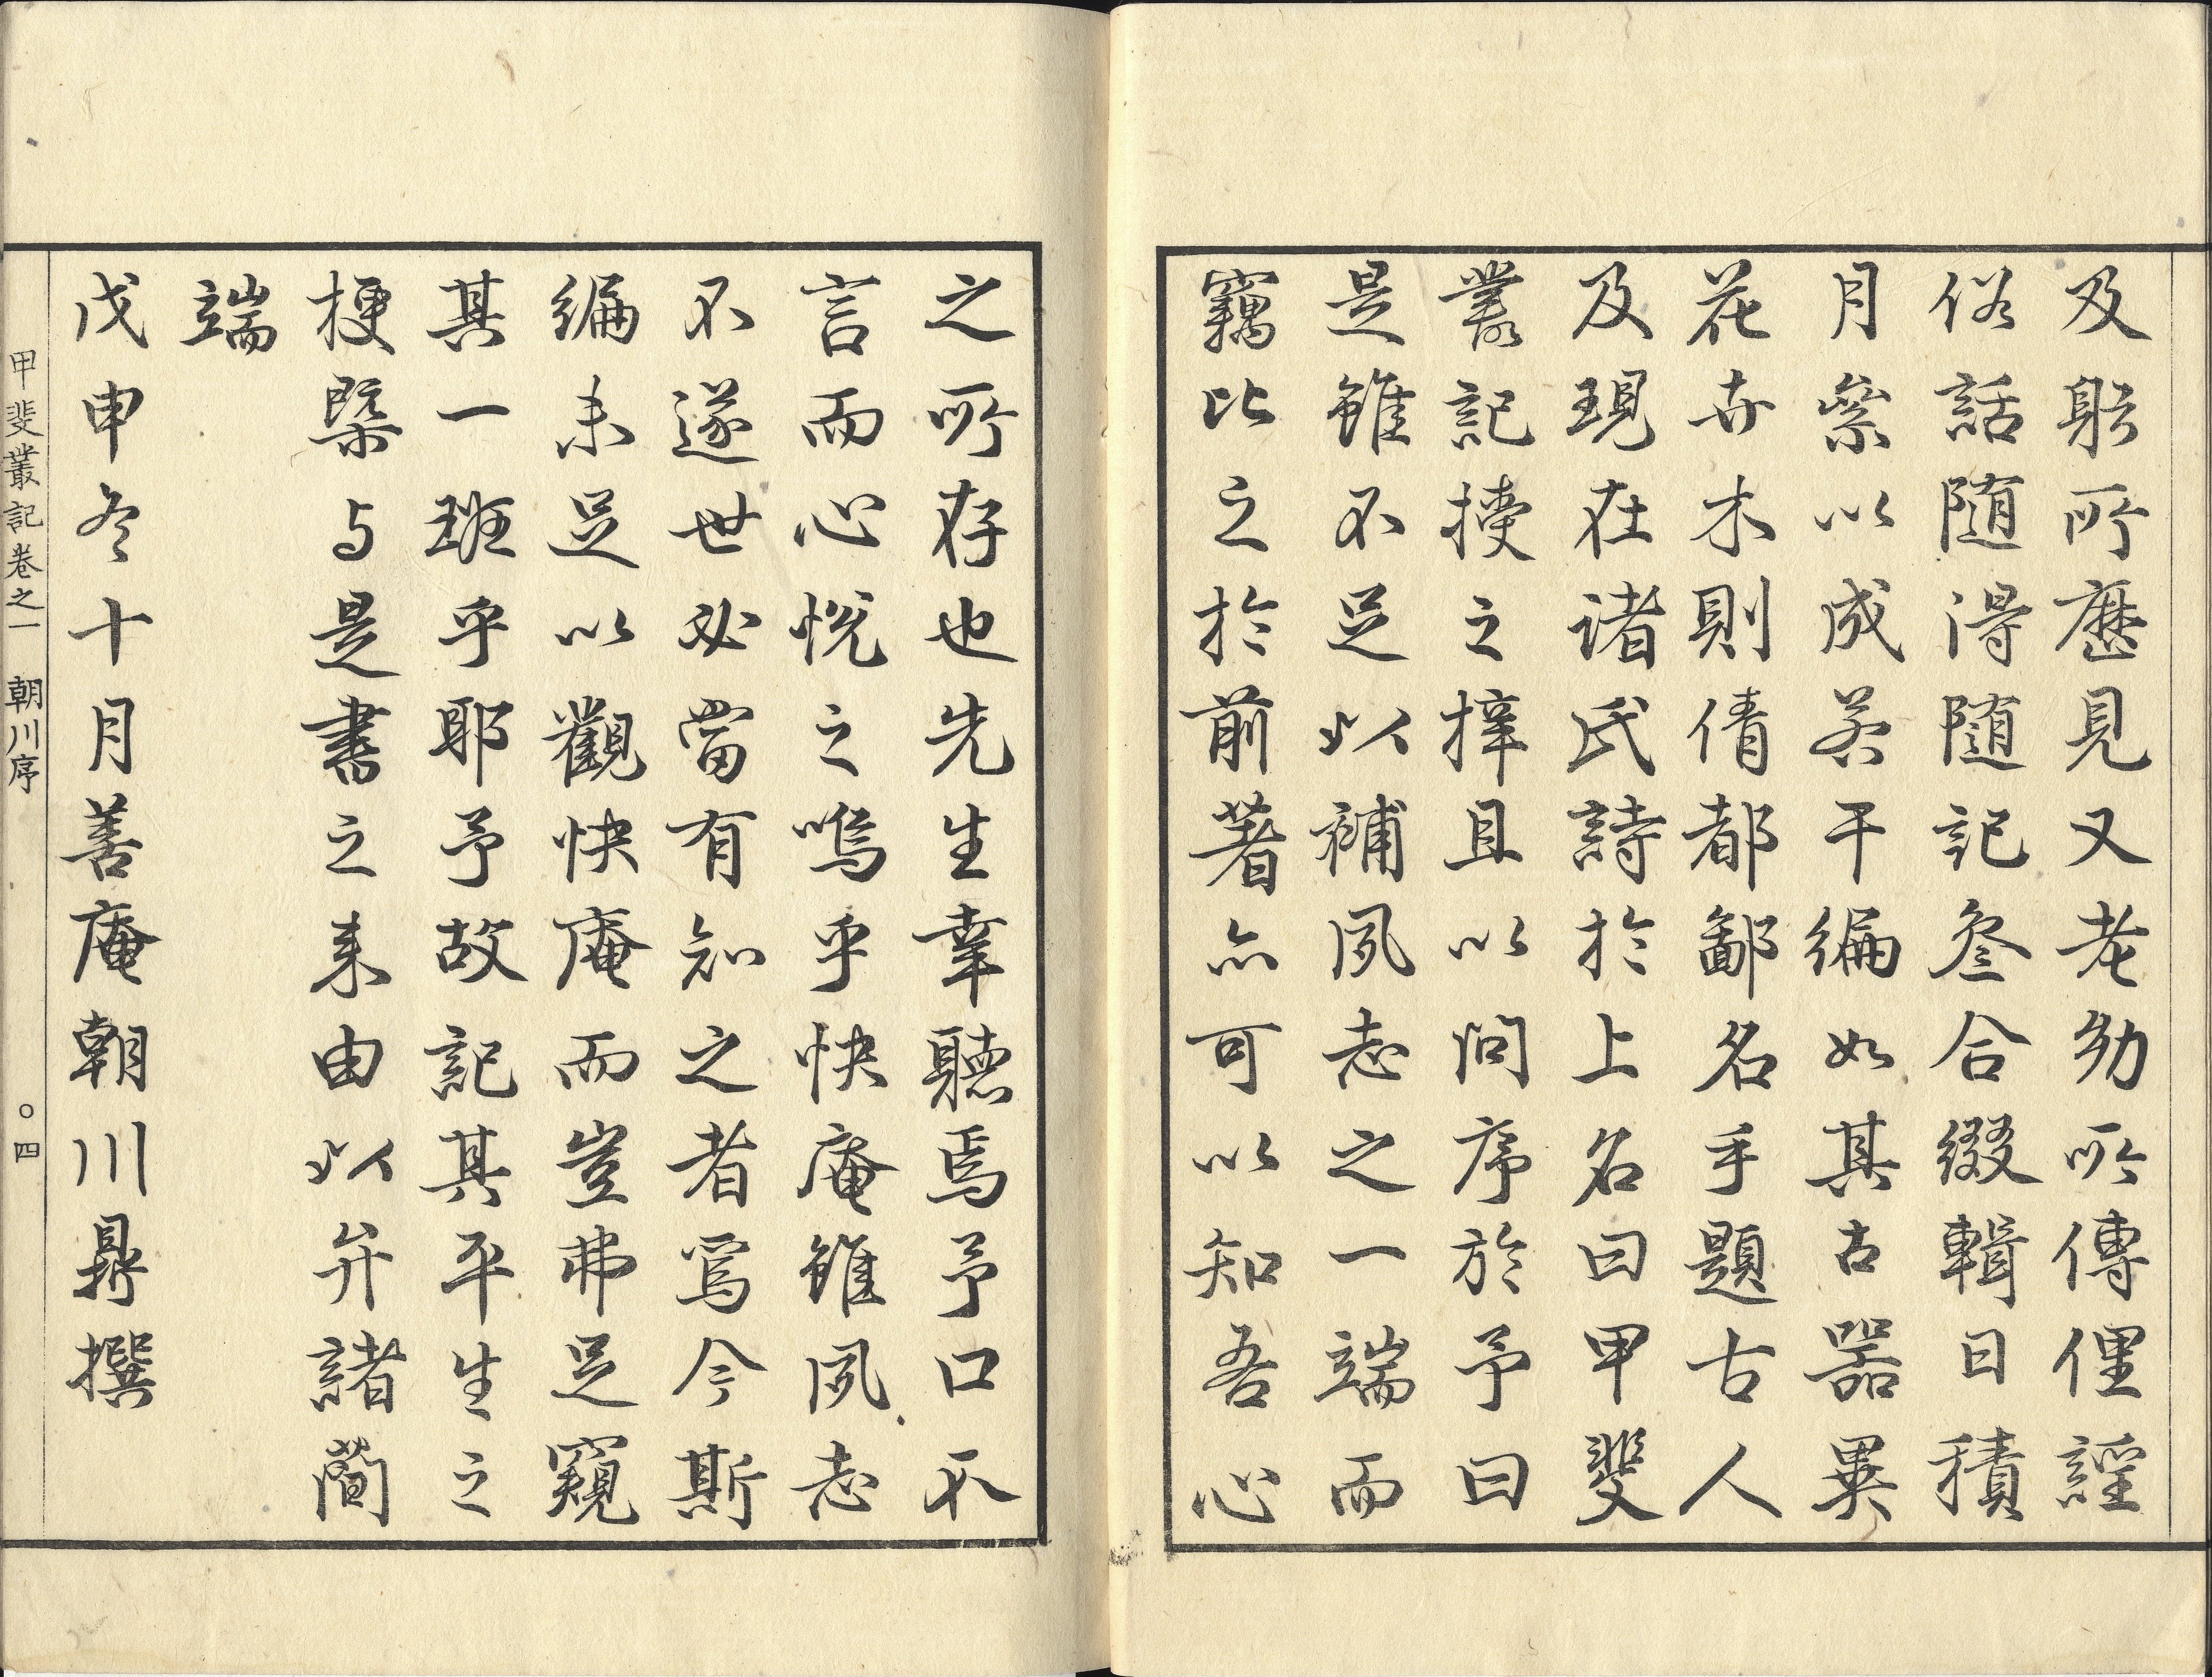 及躬所歴見又老幼所傳俚謡
俗話随得随記參合綴輯日積
月累以成若干編如其古器異
花卉木則倩都鄙名手題古人
及現在諸氏詩於上名曰甲斐
叢記授之梓且以問序於予曰
是雖不足以補夙志之一端而
竊比之於前著亦可以知吾心
之所存也先生幸聽焉予口不
言而心悦之嗚乎快庵雖夙志
不遂世必當有知之者焉今斯
編未足以觀快庵而豈弗足窺
其一班乎耶予故記其平生之
梗槩与是書之来由以弁諸簡
端
戊申冬十月善庵朝川鼎撰
甲斐叢記巻之一 朝川序 ○四